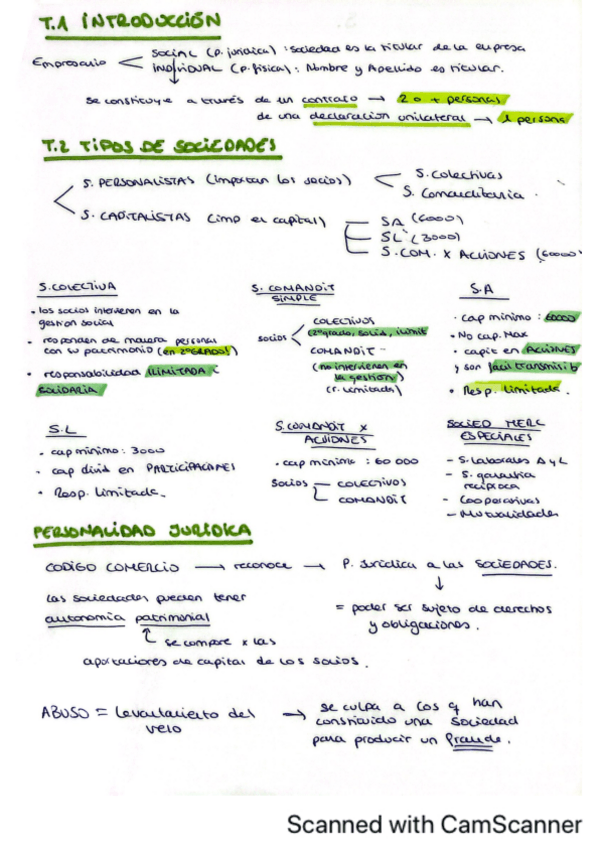 T.1 INTRODUCCIÓN
Empresario
SOCIAL (p. jurídica) : sociedad es la titular de la empresa
INDIVIDUAL (p. física) : Nombre y Apellido es titular.
se constituye a través de un contrato → 2 o + personas
de una declaración unilateral → 1 persona
T.2 TIPOS DE SOCIEDADES
S. PERSONALISTAS (importan los socios)
S. colectivas
S. Comanditaria
S. CAPITALISTAS (imp el capital)
SA (60000)
SL (3000)
S. COM. X ACCIONES (60000
S. COLECTIVA
• los socios intervienen en la
gestión social
• responden de manera personal
con su patrimonio (en 2º GRADO!)
• responsabilidad ILIMITADA i
SOLIDARIA
S. COMANDIT
SIMPLE
socios
COLECTIVOS
(2º grado, solid, ilimit
COMANDIT
(no intervienen en
la gestión)
(r. limitada)
S.A
• cap mínimo : 60000
• No cap. Max
• capit en ACCIONES
y son fácil transmisib
• Resp. limitada.
S.L
• cap mínimo : 3000
• cap divid en PARTICIPACIONES
• Resp. limitada.
S. COMANDIT X
ACCIONES
• cap mínimo : 60 000
socios
COLECTIVOS
COMANDIT
SOCIED MERC
ESPECIALES
- S. laborales A y L
- S. garantía
recíproca
- Cooperativas
- Mutualidades
PERSONALIDAD JURÍDICA
CODIGO COMERCIO → reconoce → P. Jurídica a las SOCIEDADES.
Las sociedades pueden tener
autonomía patrimonial
= poder ser sujeto de derechos
y obligaciones.
se compone x las
aportaciones de capital de los socios.
ABUSO = Levantamiento del
velo
→ se culpa a los q han
constituido una sociedad
para producir un fraude.
Scanned with CamScanner